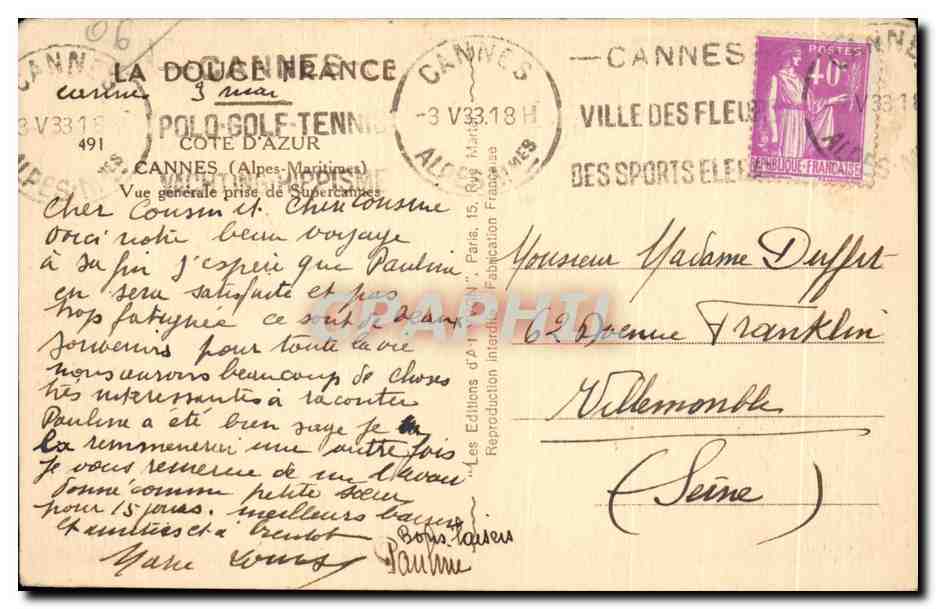 06
LA DOUCE FRANCE
Cannes 3 mai
491
COTE D'AZUR
CANNES (Alpes-Maritimes)
Vue générale prise de Supercannes
CANNES
POLO-GOLF-TENNIS
CANNES
-3 V33.18 H
ALPES MMES
—CANNES
VILLE DES FLEU
DES SPORTS ELE
POSTES
40c
REPUBLIQUE-FRANÇAISE
Cher Cousin et Chère Cousine
voici notre beau voyage
à sa fin j'espère que Pauline
en sera satisfaite et pas
trop fatiguée ce sont de beaux
souvenirs pour toute la vie
nous aurons beaucoup de choses
très interessantes à raconter
Pauline a été bien sage je
la remmenerai une autre fois
je vous remercie de me l'avoir
donné comme petite sœur
pour 15 jours. meilleurs baisers
et amitiés et à bientot
Marie Louise
Bons baisers
Pauline
"Les Editions d'Art YVON", Paris, 15, Rue Martel
Reproduction Interdite Fabrication Française
CPAPHIL
Monsieur Madame Duffet
62 Avenue Franklin
Villemonble
(Seine)